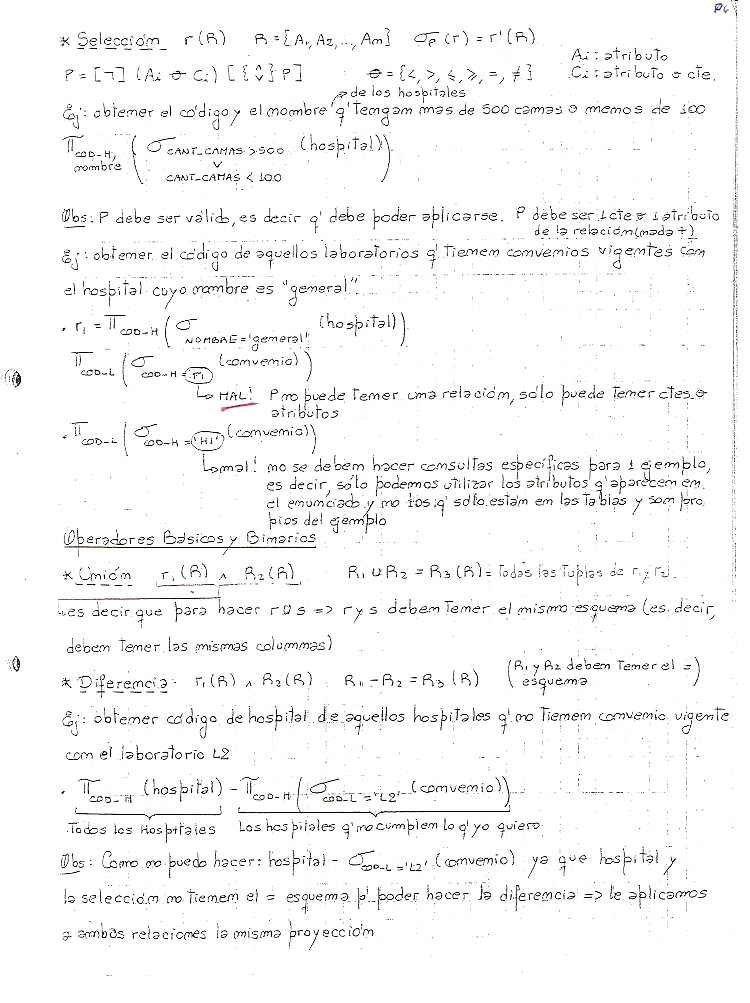 P6
* Selección r(R) R=[A1, A2, ..., Am] σp(r) = r'(R)
Ai: atributo
P = [¬] (Ai θ Ci) [{^v} P] θ = {<, >, ≤, ≥, =, ≠} Ci: atributo o cte.
→ de los hospitales
Ej: obtener el código y el nombre q' tengan mas de 500 camas o menos de 100
π COD-H, nombre ( σ CANT-CAMAS > 500 v CANT-CAMAS < 100 (hospital))
Obs: P debe ser válido, es decir q' debe poder aplicarse. P debe ser 1 cte o 1 atributo
de la relación (nada +)
Ej: obtener el código de aquellos laboratorios q' tienen convenios vigentes con
el hospital cuyo nombre es "general"
. r1 = π COD-H ( σ NOMBRE = "general" (hospital))
π COD-L ( σ COD-H = r1 (convenio))
↳ MAL! P no puede tener una relación, sólo puede tener ctes o
atributos
. π COD-L ( σ COD-H = 'H1' (convenio))
↳ mal! no se deben hacer consultas específicas para 1 ejemplo,
es decir, sólo podemos utilizar los atributos q' aparecen en
el enunciado y no los q' sólo están en las tablas y son pro
pios del ejemplo
Operadores Básicos y Binarios
* Unión r1(R) ∧ R2(R) R1 ∪ R2 = R3(R) = Todas las tuplas de r1 y r2
↳ es decir que para hacer r∪s => r y s deben tener el mismo esquema (es decir,
deben tener las mismas columnas)
* Diferencia r1(R) ∧ R2(R) R1 - R2 = R3(R) (R1 y R2 deben tener el =
esquema)
Ej: obtener código de hospital de aquellos hospitales q' no tienen convenio vigente
con el laboratorio L2
. π COD-H (hospital) - π COD-H ( σ COD-L = 'L2' (convenio))
Todos los Hospitales Los hospitales q' no cumplen lo q' yo quiero
Obs: Como no puedo hacer: hospital - σ COD-L = 'L2' (convenio) ya que hospital y
la selección no tienen el = esquema p' poder hacer la diferencia => le aplicamos
a ambos relaciones la misma proyección